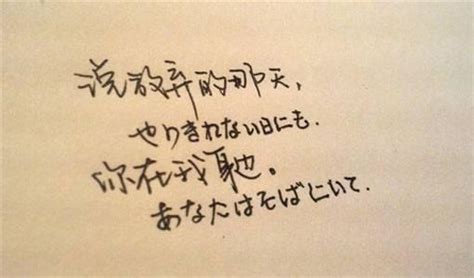 说放弃的那天，
やりきれない日にも.
你在我
あなたはそばにいて.